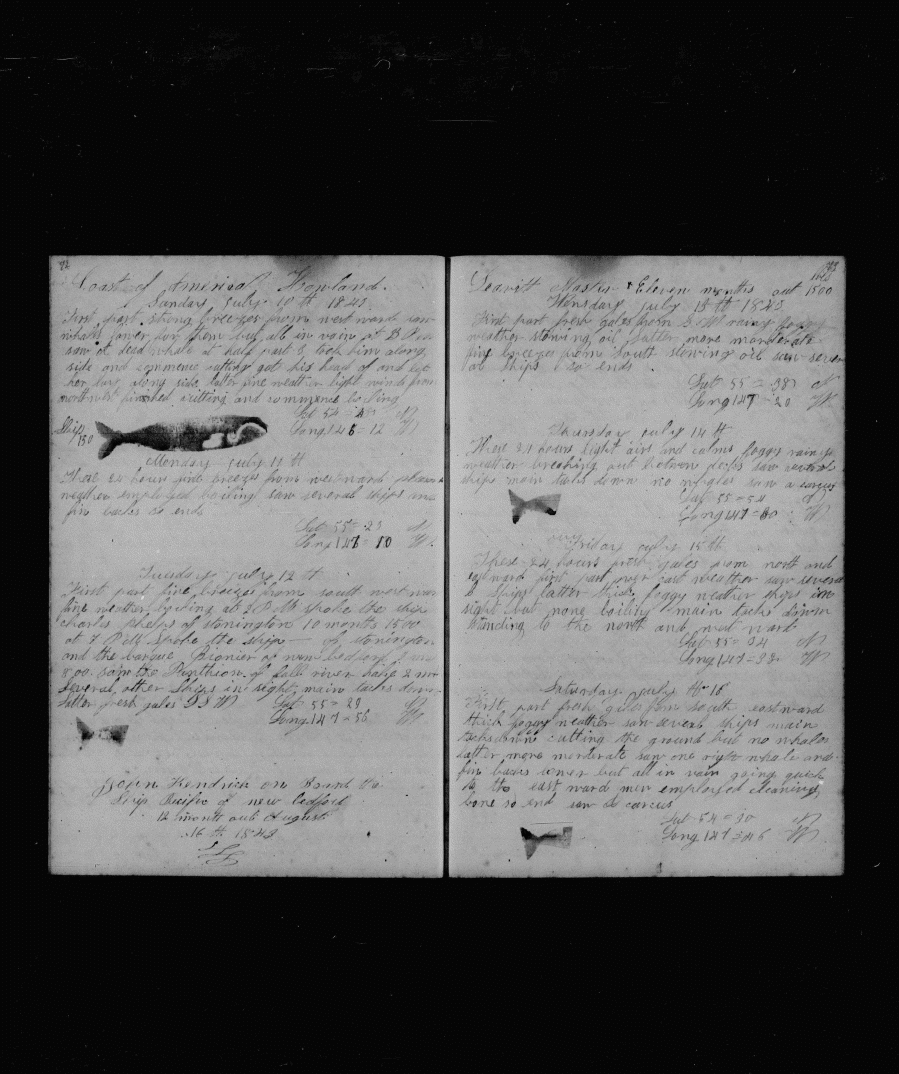 72
Coast of America Howland
Sunday July 10 th 1843
First part strong breezes from west ward saw
whales lower for them but all in vain at 3 P M
saw a dead whale at half past 5 took him along
side and commence cutting got his head of and let
her lay along side latter fine weather light winds from
northwest finished cutting and commence boiling
Lat 54 = N
Long 146 = 12 W
Ship
130
Monday July 11 th
These 24 hours fine breezes from westward
weather employed boiling saw several ships and
fin backs so ends
Lat 55 = 23 N
Long 147 = 10 W
Tuesday July 12 th
First part fine breezes from south west
fine weather boiling at 2 P M spoke the ship
charles phelps of stonington 10 months 1500
at 7 P M spoke the ship — of stonington
and the barque Pionier of new bedford
800 saw the Pantheon of fall river
several other ships in sight main tacks down
latter fresh gales
Lat 55 = 29 N
Long 147 = 56 W
John Kendrick on Board the
Ship Pacific of new bedford
12 month out August
16 th 1843
73
1843
Leavitt Master Eleven months out 1500
Wensday July 13 th 1843
First part fresh gales from S W rainy foggy
weather stowing oil latter more morderate
fine breezes from south stowing oil saw
ships so ends
Lat 55 = 38 N
Long 147 = 20 W
Thursday July 14 th
These 24 hours light airs and calms foggy rainy
weather breaking out between decks saw several
ships main tacks down no whales saw a carcus
Lat 55 = 54 N
Long 147 = 30 W
Friday July 15 th
These 24 hours fresh gales from north and
eastward first part over cast weather saw several
ships latter thick foggy weather ships in
sight but none boiling main tacks down
standing to the north and west ward
Lat 55 = 34 N
Long 147 = 33 W
Saturday July th 16
First part fresh gales from south eastward
thick foggy weather saw several ships main
tacks down cutting the ground but no whales
latter more morderate saw one right whale and
fin backs lower but all in vain going quick
to the east ward men employed cleaning
bone so end saw a carcus
Lat 54 = 30 N
Long 147 = 46 W